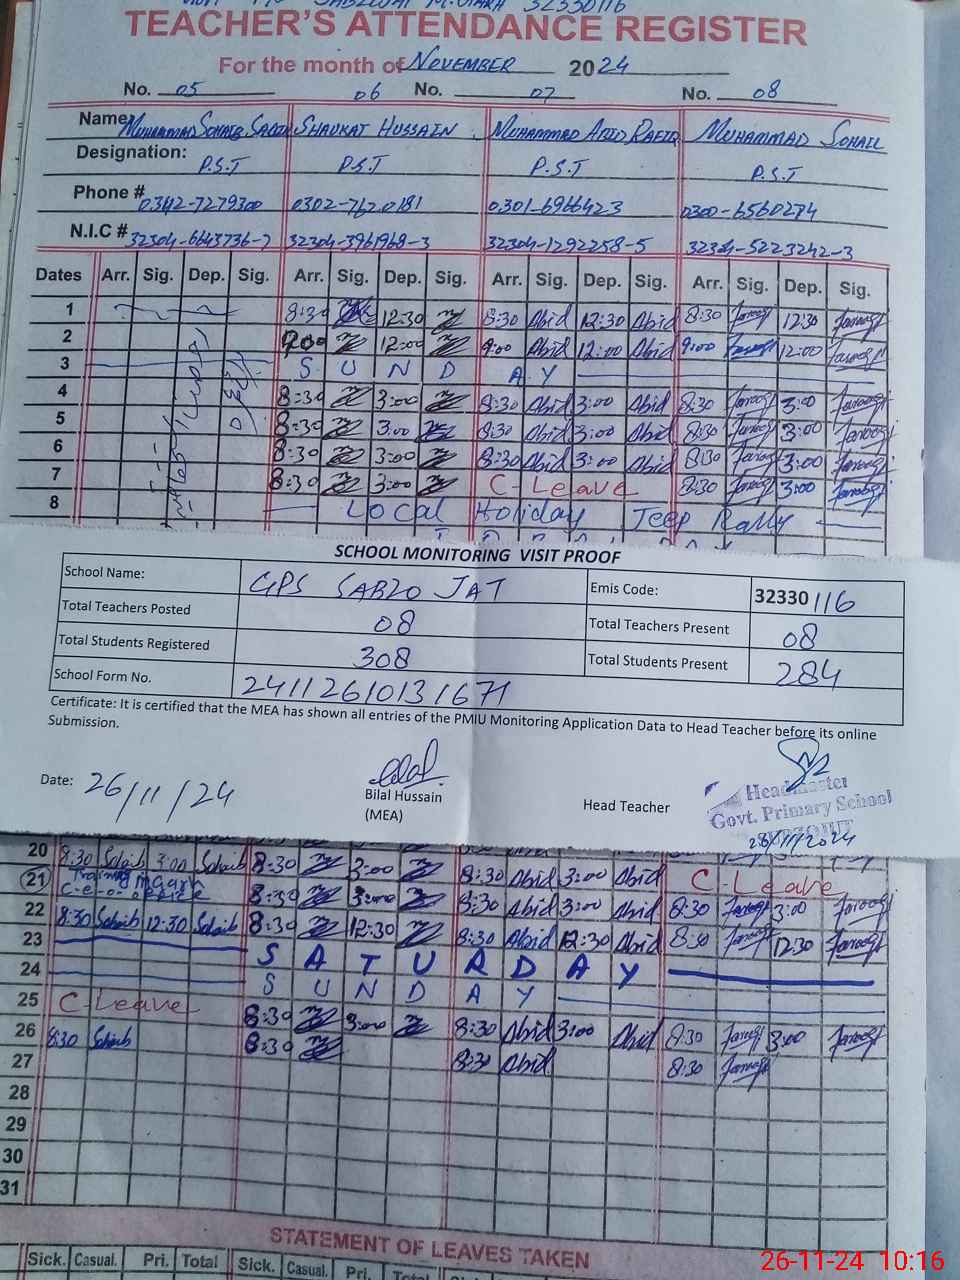 TEACHER'S ATTENDANCE REGISTER
For the month of November 2024
No. 05 06 No. 07 No. 08
Name Muhammad Sohaib Shaukat Hussain Muhammad Abid Rafiq Muhammad Sohail
Designation: P.S.T P.S.T P.S.T P.S.T
Phone # 0342-7279300 0302-7620181 0301-6966423 0300-6560274
N.I.C # 32304-6643736-7 32304-3961968-3 32304-1292258-5 32304-5223242-3
Dates Arr. Sig. Dep. Sig. Arr. Sig. Dep. Sig. Arr. Sig. Dep. Sig. Arr. Sig. Dep. Sig.
1 8:30 12:30 8:30 Abid 12:30 Abid 8:30 Farooqi 12:30 Farooqi
2 9:00 12:00 9:00 Abid 12:00 Abid 9:00 Farooqi 12:00 Farooqi
3 S U N D A Y
4 8:30 3:00 8:30 Abid 3:00 Abid 8:30 Farooqi 3:00 Farooqi
5 8:30 3:00 8:30 Abid 3:00 Abid 8:30 Farooqi 3:00 Farooqi
6 8:30 3:00 8:30 Abid 3:00 Abid 8:30 Farooqi 3:00 Farooqi
7 8:30 3:00 C-Leave 8:30 Farooqi 3:00 Farooqi
8 Local Holiday Jeep Rally
SCHOOL MONITORING VISIT PROOF
School Name: GPS SABZO JAT Emis Code: 32330116
Total Teachers Posted 08 Total Teachers Present 08
Total Students Registered 308 Total Students Present 284
School Form No. 24112610131671
Certificate: It is certified that the MEA has shown all entries of the PMIU Monitoring Application Data to Head Teacher before its online
Submission.
Date: 26/11/24
Bilal Hussain
(MEA)
Head Teacher
Headmaster
Govt. Primary School
26/11/2024
20 8:30 Sohaib 3:00 Sohaib 8:30 3:00 8:30 Abid 3:00 Abid C-Leave
21 Training
C-E-O- office 8:30 3:00 8:30 Abid 3:00 Abid 8:30 Farooqi 3:00 Farooqi
22 8:30 Sohaib 12:30 Sohaib 8:30 12:30 8:30 Abid 12:30 Abid 8:30 Farooqi 12:30 Farooqi
23 S A T U R D A Y
24 S U N D A Y
25 C-Leave 8:30 3:00 8:30 Abid 3:00 Abid 8:30 Farooqi 3:00 Farooqi
26 8:30 Sohaib 8:30 8:30 Abid 8:30 Farooqi
27
28
29
30
31
STATEMENT OF LEAVES TAKEN
Sick. Casual. Pri. Total Sick. Casual. Pri. Total Sick.
26-11-24 10:16